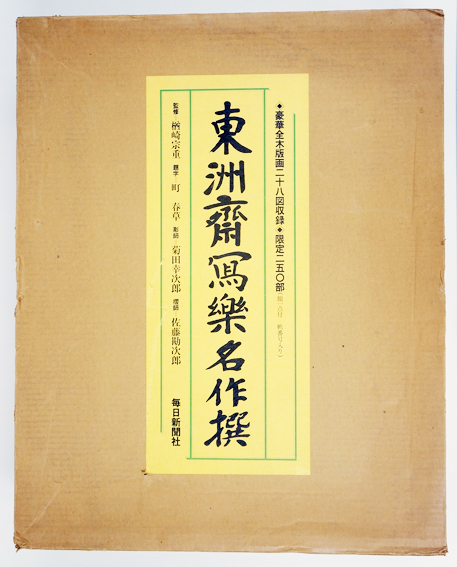 ◆豪華全木版画二十八図収録◆限定二五〇部
東洲齋冩樂名作撰
監修 楢崎宗重 題字 町 春草 彫師 菊田幸次郎 摺師 佐藤勘次郎
毎日新聞社